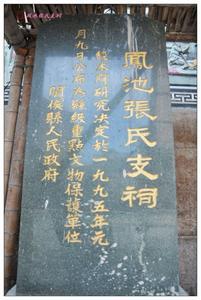 鳳池張氏支祠
經本府研究决定於一九九五年元
月九日公布為縣級重點文物保護單位
閩侯縣人民政府